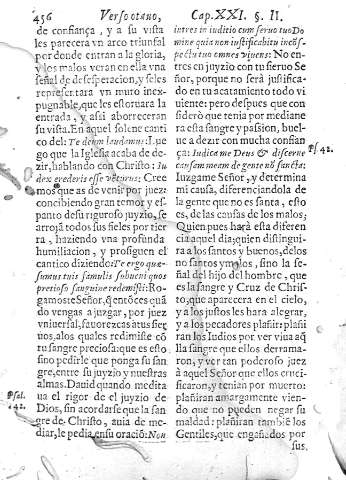 456 Verso otauo,
de confiança, y a su vista
les parecera vn arco triunfal
por donde entran a la gloria,
y los malos veran en ella vna
señal de desesperacion, y seles
representara vn muro inex-
pugnable, que les estoruara la
entrada, y assi aborreceran
su vista. En aquel solene canti
co del: Te deum laudamus: Lue
go que la Iglesia acaba de de-
zir, hablando con Christo: Iu
dex crederis esse venturus: Cree
mos que as de venir por juez:
concibiendo gran temor y es-
panto desu riguroso juyzio, se
arroja todos sus fieles por tier
ra, haziendo vna profunda
humiliacion, y prosiguen el
cantico diziendo: Te ergo quæ-
sumus tuis famulis subueni quos
pretioso sanguine redemisti: Ro
gamoste Señor, q̃ entõces quã
do vengas a juzgar, por juez
vniuersal, fauorezcas atus sier
uos, alos quales redimiste cõ
tu sangre preciosa: que es esto
sino pedirle que ponga su san
gre, entre su juyzio y nuestras
almas. Dauid quando medita
ua el rigor de el juyzio de
Dios, sin acordarse que la san
gre de Christo, auia de me-
diar, le pedia, en su oració: Non
Psal.
142.
Cap. XXI. §. II.
intres in iuditio cum seruo tuo Do
mine quia non iustificabitur in cõs
pectu tuo omnes viuens: No en-
tres en juyzio con tu sieruo Se
ñor, porque no serà justifica-
do en tu acatamiento todo vi
uiente: pero despues que con
siderò que tenia por mediane
ra esta sangre y passion, buel-
ue a dezir con mucha confian
ça: Iudica me Deus & discerne
causam meam de gente nõ sancta:
Iuzgame Señor, y determina
mi causa, diferenciandola de
la gente que no es santa, esto
es, de las causas de los malos;
Quien pues harà esta diferen
cia aquel dia; quien distingui-
ra a los santos y buenos, de los
no santos y malos, sino la se-
ñal del hijo del hombre, que
es la sangre y Cruz de Chris-
to, que aparecera en el cielo,
y a los justos les hara alegrar,
y a los pecadores plañir: plañi
ran los Iudios por ver viua aq̃
lla sangre que ellos derrama-
ron, y ver tan poderoso juez
à aquel Señor que ellos cruci-
ficaron, y tenian por muerto:
plañiran amargamente vien-
do que no pueden negar su
maldad: plañiran tambiẽ los
Gentiles, que engañados por
sus
Ps. 42.